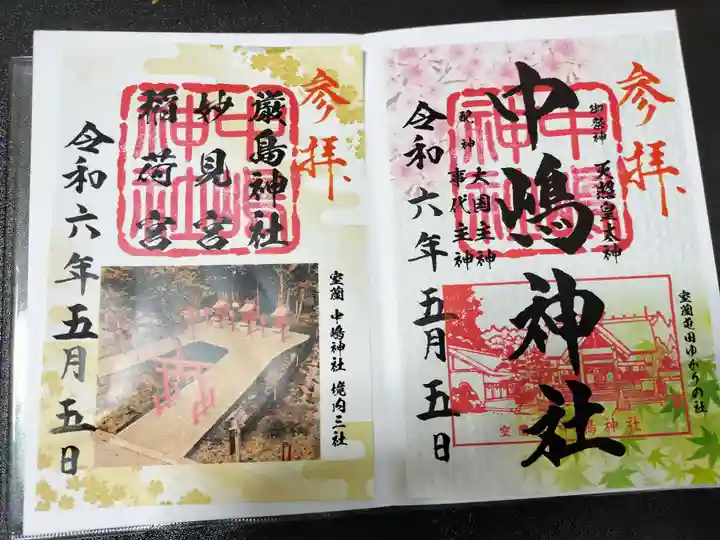 参拝
中嶋神社
御祭神 天照皇太神
配神 大国主神
事代主神
中嶋神社
令和六年五月五日
室蘭屯田ゆかりの社
室蘭 中嶋神社
参拝
中嶋神社
厳島神社
妙見宮
稲荷宮
令和六年五月五日
室蘭 中嶋神社 境内三社